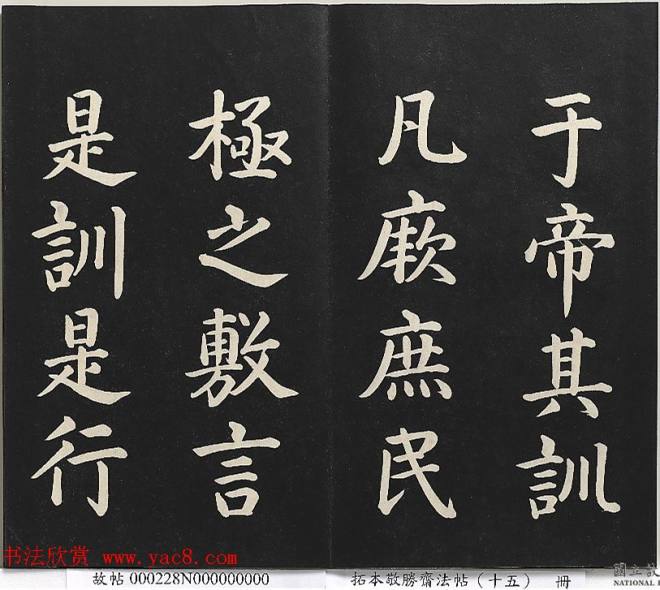 于帝其訓
凡厥庶民
極之敷言
是訓是行
书法欣赏 www.yac8.com
故帖 000228N000000000
拓本敬勝齋法帖(十五) 冊
國立
NATIONAL